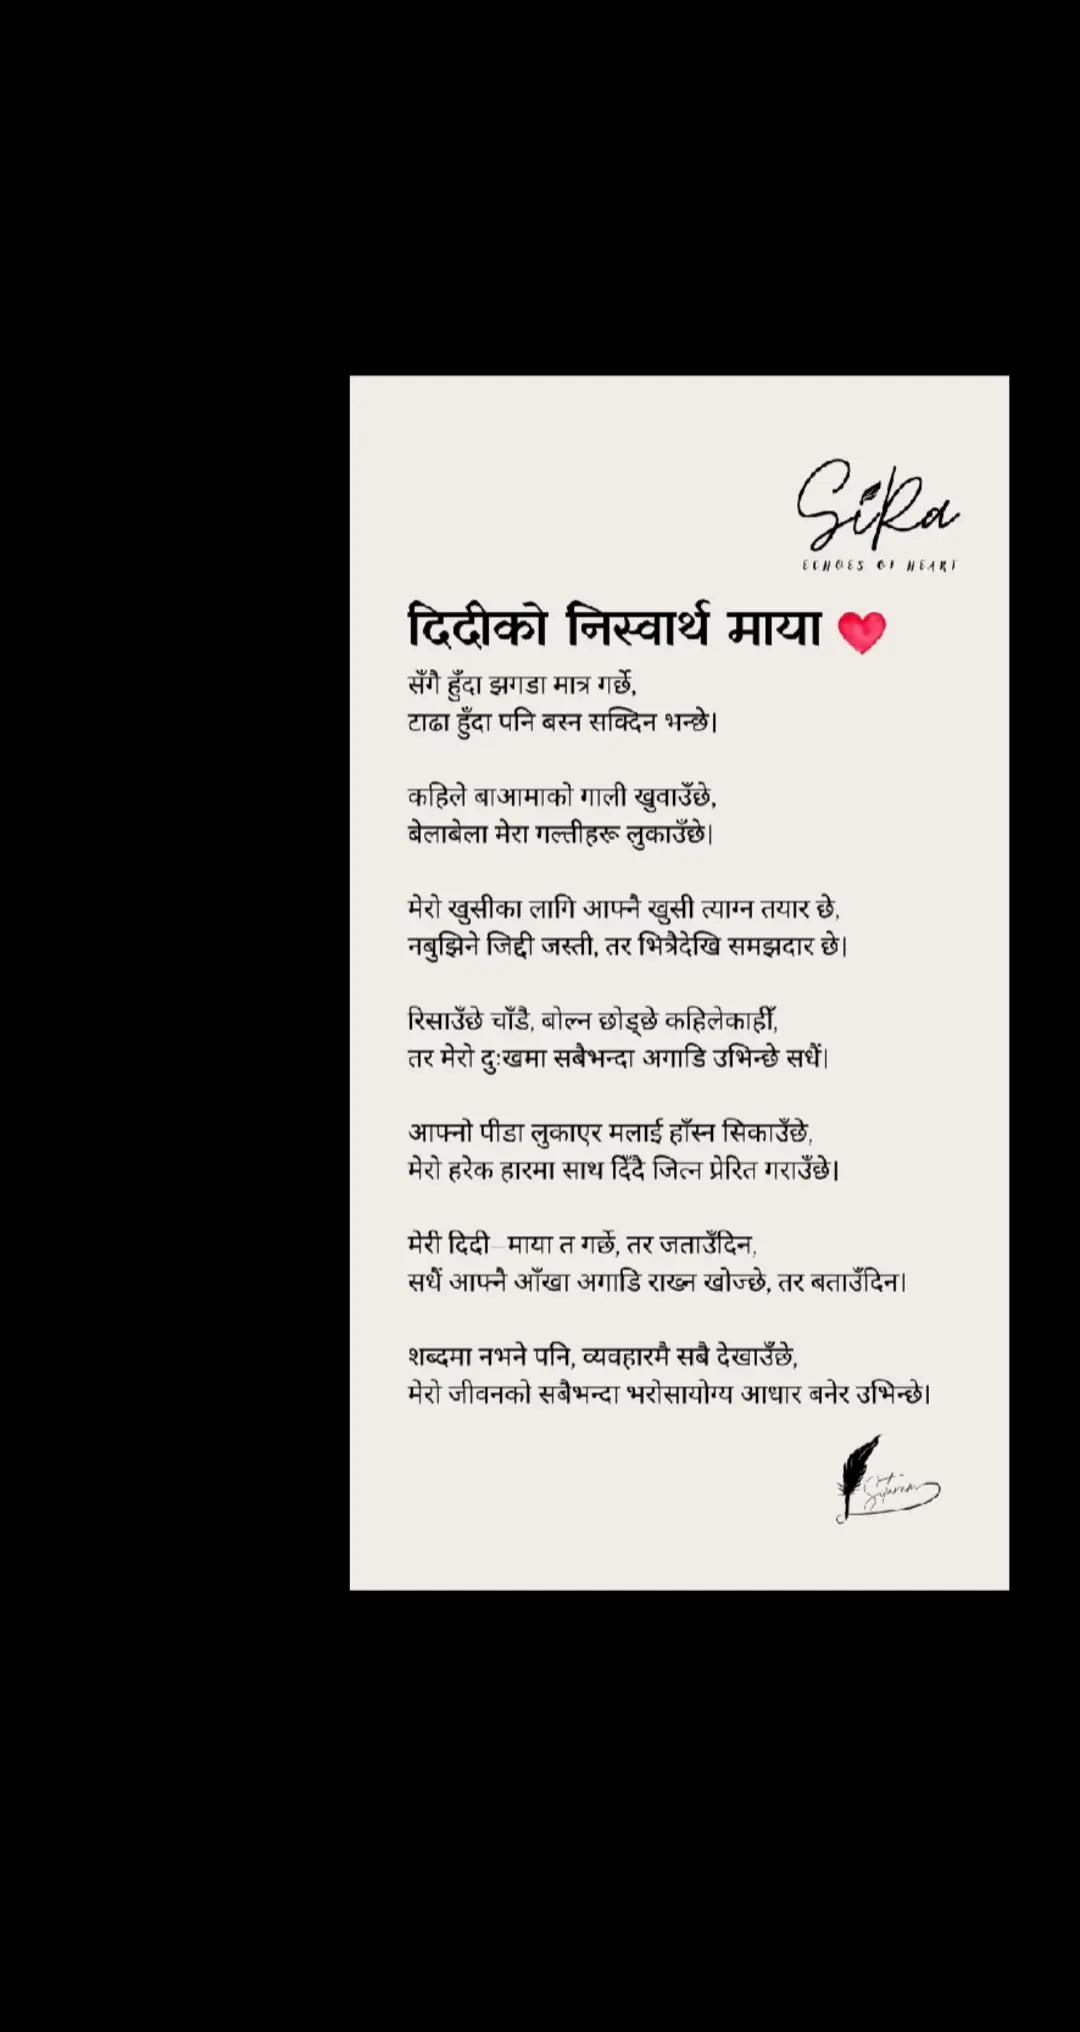 SiRa
ECHOES OF HEART
दिदीको निस्वार्थ माया ❤️
सँगै हुँदा झगडा मात्र गर्छे,
टाढा हुँदा पनि बस्न सक्दिन भन्छे।
कहिले बाआमाको गाली खुवाउँछे,
बेलाबेला मेरा गल्तीहरू लुकाउँछे।
मेरो खुसीका लागि आफ्नै खुसी त्याग्न तयार छे,
नबुझिने जिद्दी जस्ती, तर भित्रैदेखि समझदार छे।
रिसाउँछे चाँडै, बोल्न छोड्छे कहिलेकाहीँ,
तर मेरो दुःखमा सबैभन्दा अगाडि उभिन्छे सधैं।
आफ्नो पीडा लुकाएर मलाई हाँस्न सिकाउँछे,
मेरो हरेक हारमा साथ दिँदै जित्न प्रेरित गराउँछे।
मेरी दिदी—माया त गर्छे, तर जताउँदिन,
सधैं आफ्नै आँखा अगाडि राख्न खोज्छे, तर बताउँदिन।
शब्दमा नभने पनि, व्यवहारमै सबै देखाउँछे,
मेरो जीवनको सबैभन्दा भरोसायोग्य आधार बनेर उभिन्छे।